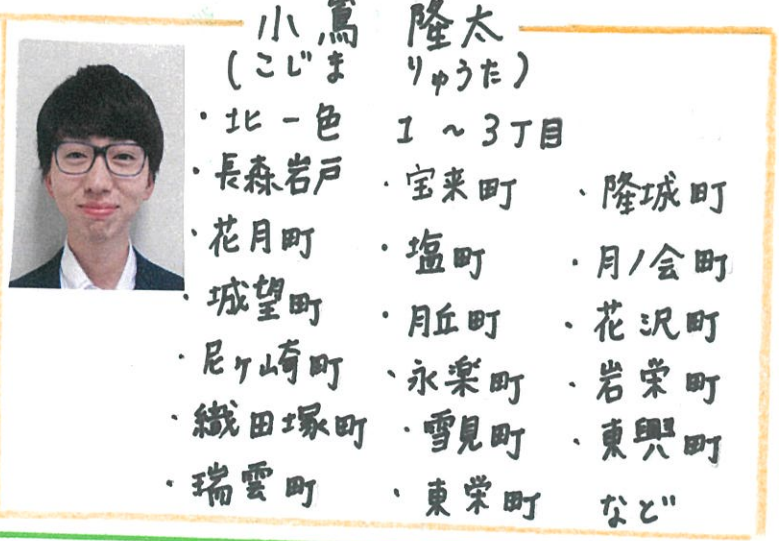 小嶌 隆太
(こじま りゅうた)
・北一色 1～3丁目
・長森岩戸 ・宝来町 ・隆城町
・花月町 ・塩町 ・月ノ会町
・城望町 ・月丘町 ・花沢町
・尼ヶ崎町 ・永楽町 ・岩栄町
・織田塚町 ・雪見町 ・東興町
・瑞雲町 ・東栄町 など